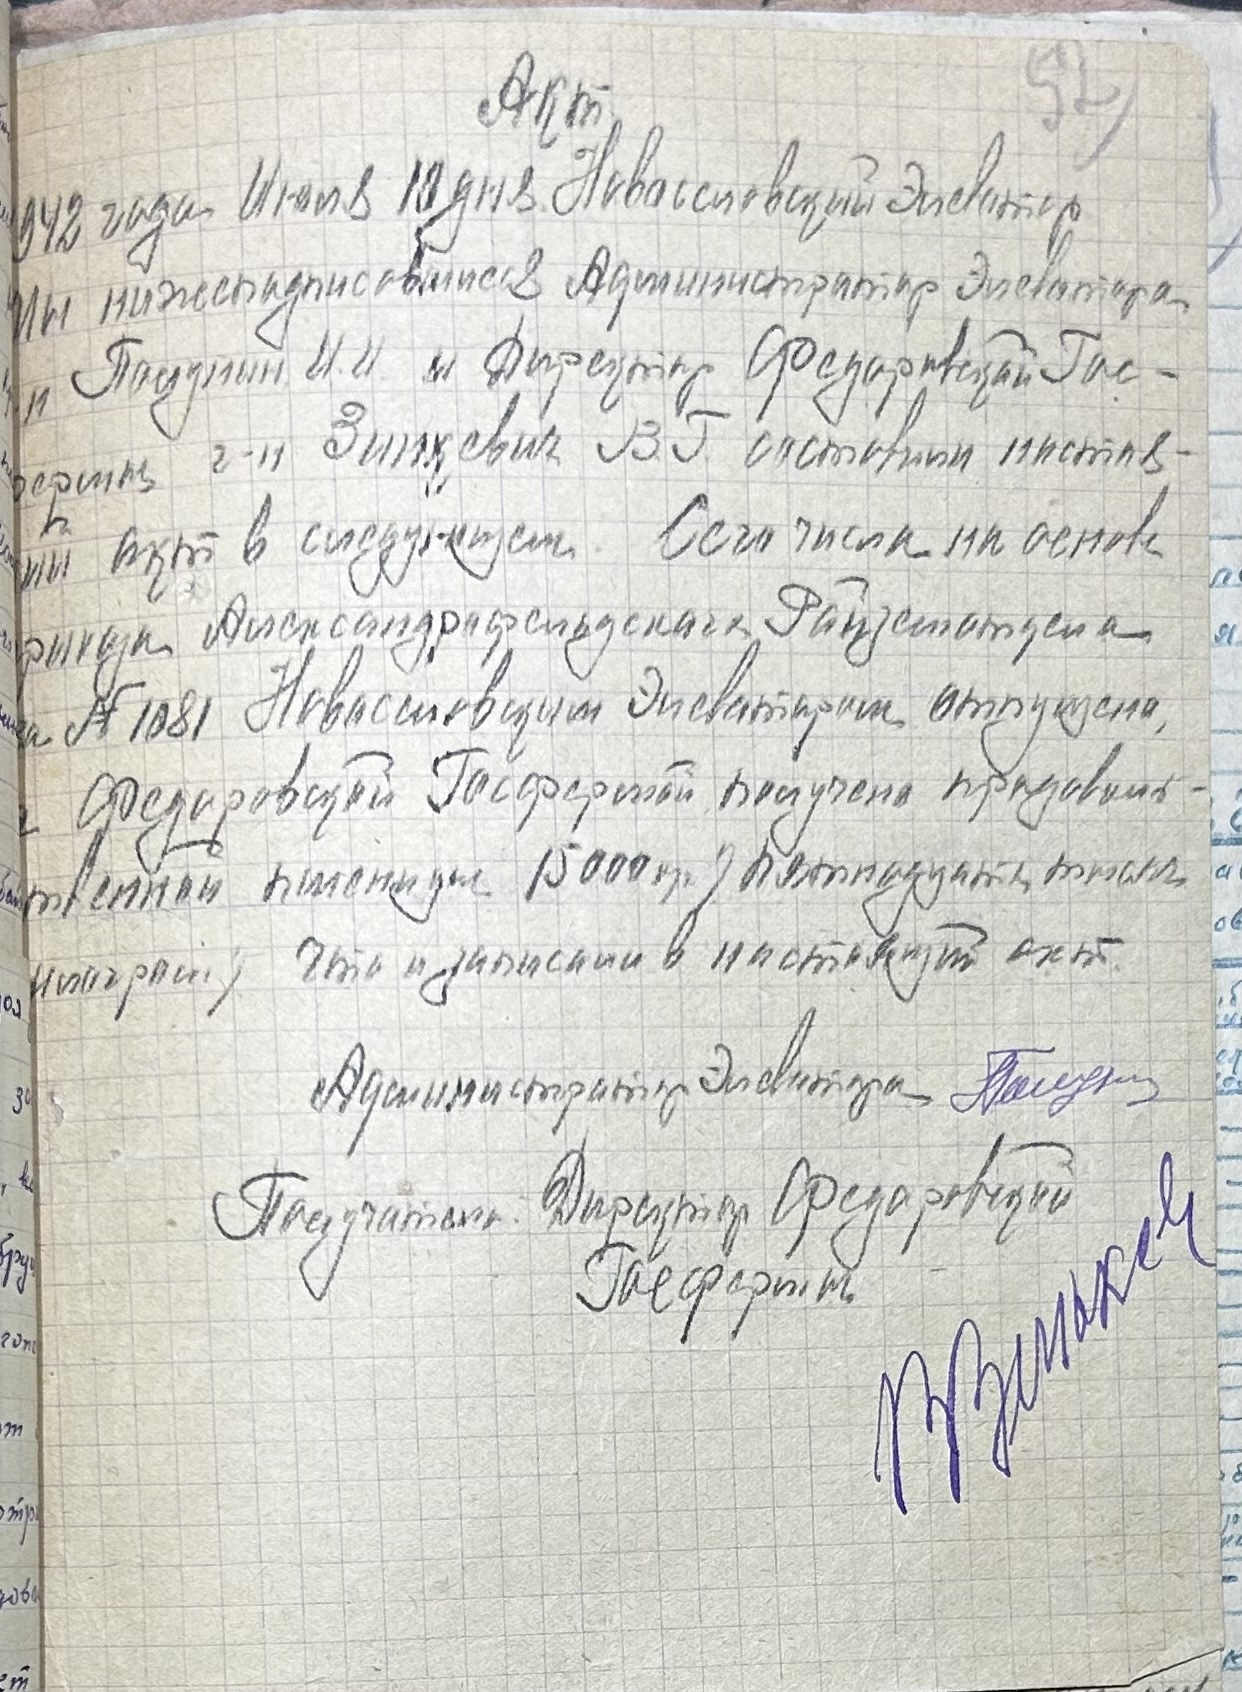 52
Акт
942 года Июля 10 дня. Новоселовский Элеватор
Мы нижеподписавшиеся Администратор Элеватора
-н Полунин И.И. и Директор Федоровской Гос-
фермы г-н Зинкевич В.Г. составили настоя-
щий акт в следующем. Сего числа на основе
приказа Александрфельдского Райзематдела
за № 1081 Новоселовским Элеватором отпущено,
и Федоровской Госфермой получено продоволь-
ственной пшеницы 15000 кг. /пятнадцать тысяч
килограм/ что и записали в настоящий акт.
Администратор Элеватора Полунин
Получатель: Директор Федоровской
Госфермы
ВЗинкев